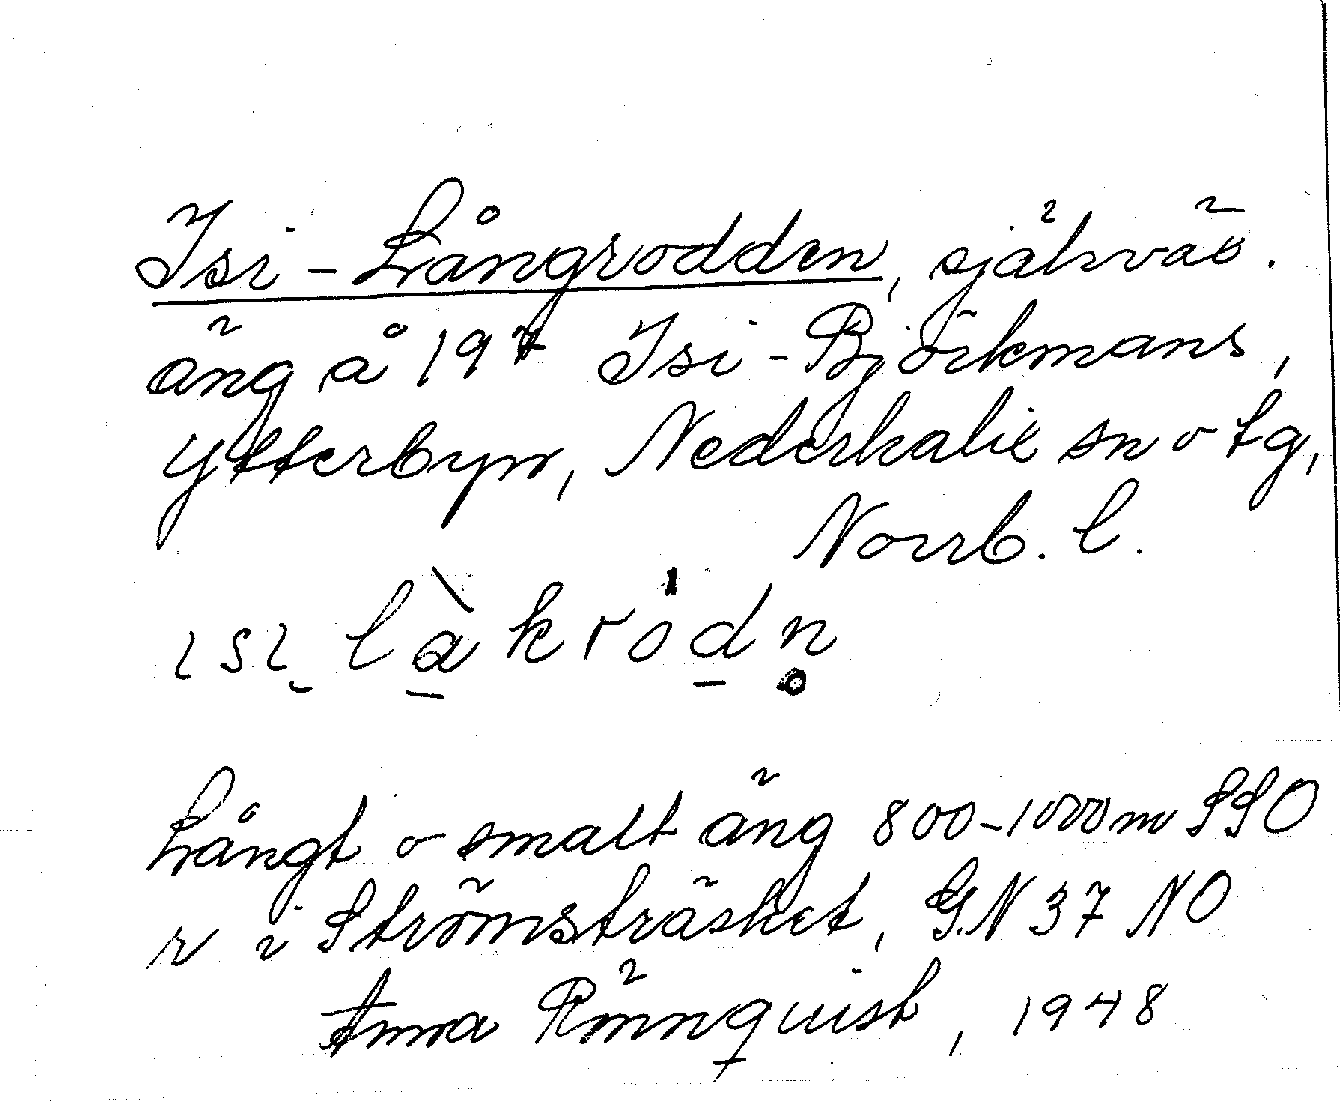 Isi-Långrodden, själväx.
äng å 19⁷ Isi-Björkmans,
Ytterbyn, Nederkalix sn o tg,
Norrb. l.
ısı̮ là̠krȯd̠n̥
Långt o smalt äng 800-1000 m SSO
r i Strömsträsket, GN 37 NO
Anna Rönnquist, 1948